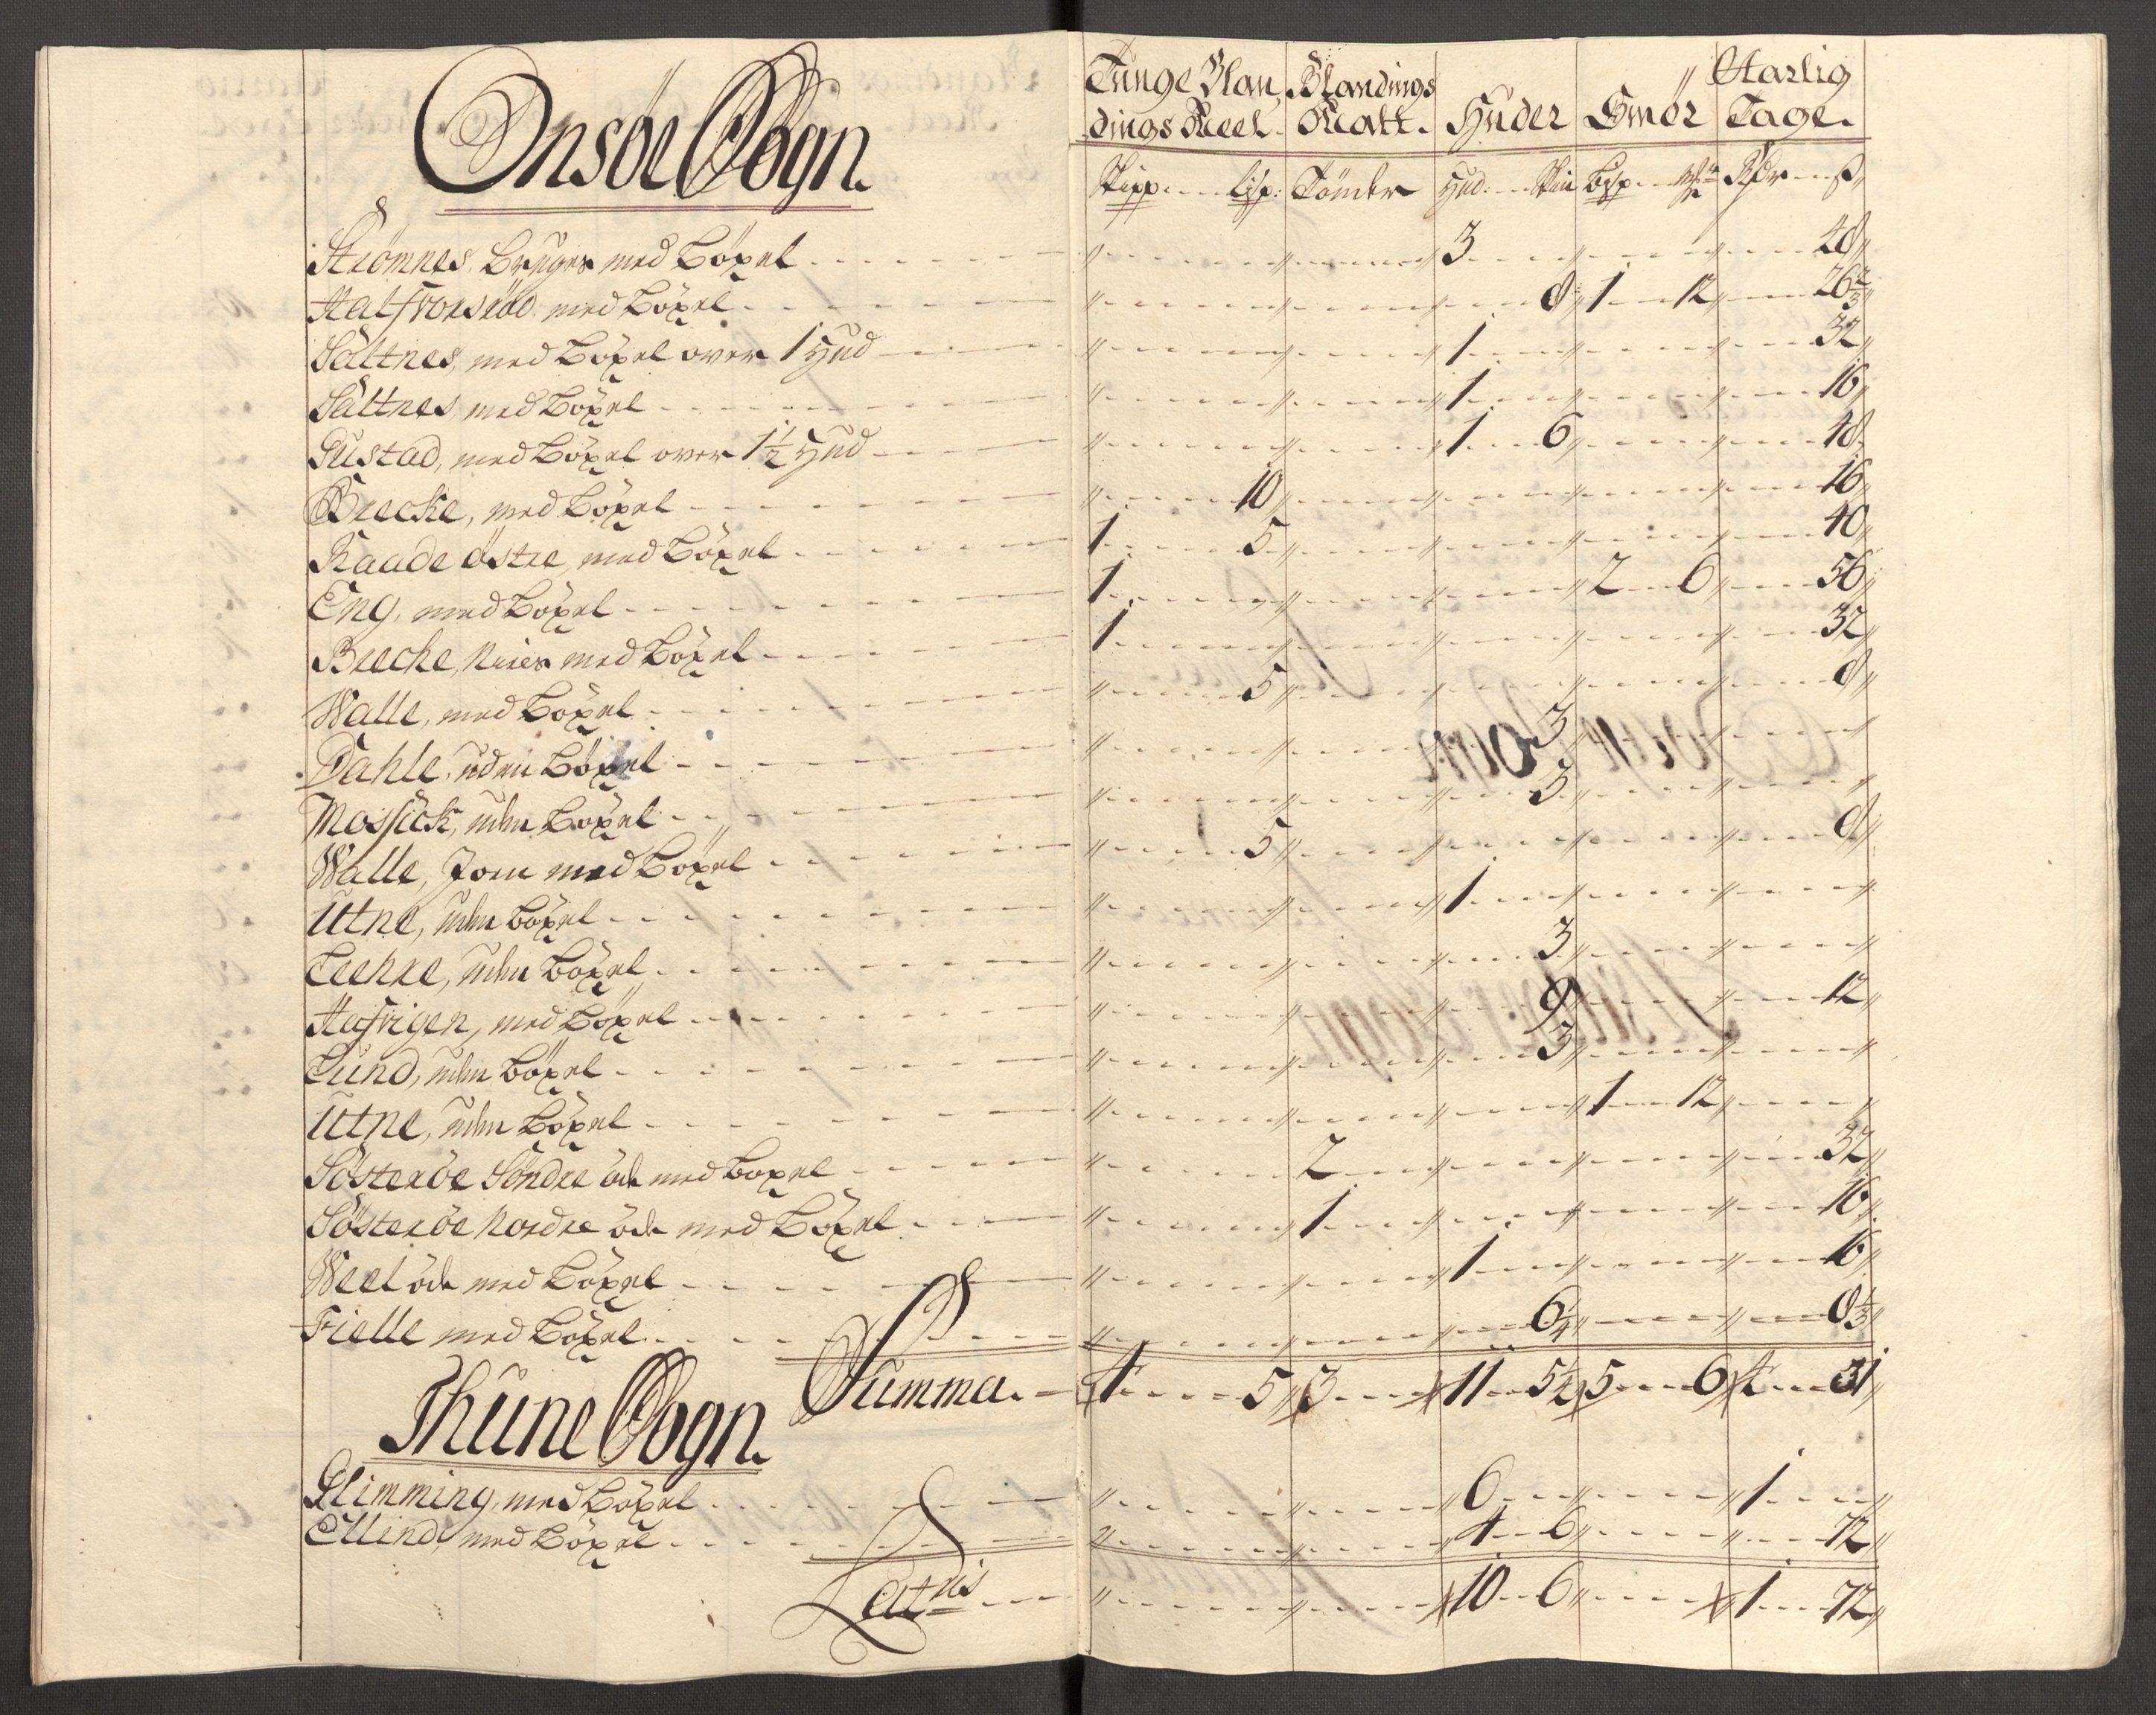 Tunge Blan, Blandings Aarlig
dings Meel. Skatt. Huder Smör Tage.
Onsöe Sogn.
Skipp. Lisp: Tönder Hud. Skin Bisp. Rdr ß
Strömnes, Bruger med Böxel 3 48
Halfvorsröd med Böxel 8 1 12 26 2/3
Saltnes, med Böxel over 1 Hud 1 32
Saltnes med Böxel 1 16
Gustad, med Böxel over 1½ Hud 1 6 48
Brecke, med Böxel 10 16
Raade östre med Böxel 1 5 40
Eng, med Böxel 1 2 6 56
Brecke, med Böxel 1 32
Walle, med Böxel 5 8
Dahle, uden Böxel 3
Mossick, uden Böxel 3
Walle, Jorn med Böxel 5 8
Utne, uden Böxel 1
Leehre, uden Böxel 3
Hafvigen, med Böxel 9 12
Lund, uden Böxel 3
Utne, uden Böxel 1 12
Sösteröe Söndre öde med Boxel 2 32
Sösteröe Nordre öde med Böxel 1 16
Weel öde med Böxel 1 16
Fielle med Böxel 6¼ 8 1/3
Summa. 4 5 3 11 5¼ 5 6 4 31
Thune Sogn.
Glimming, med Böxel 6 1
Ellind, med Böxel 4 6 72
Latris 10 6 1 72